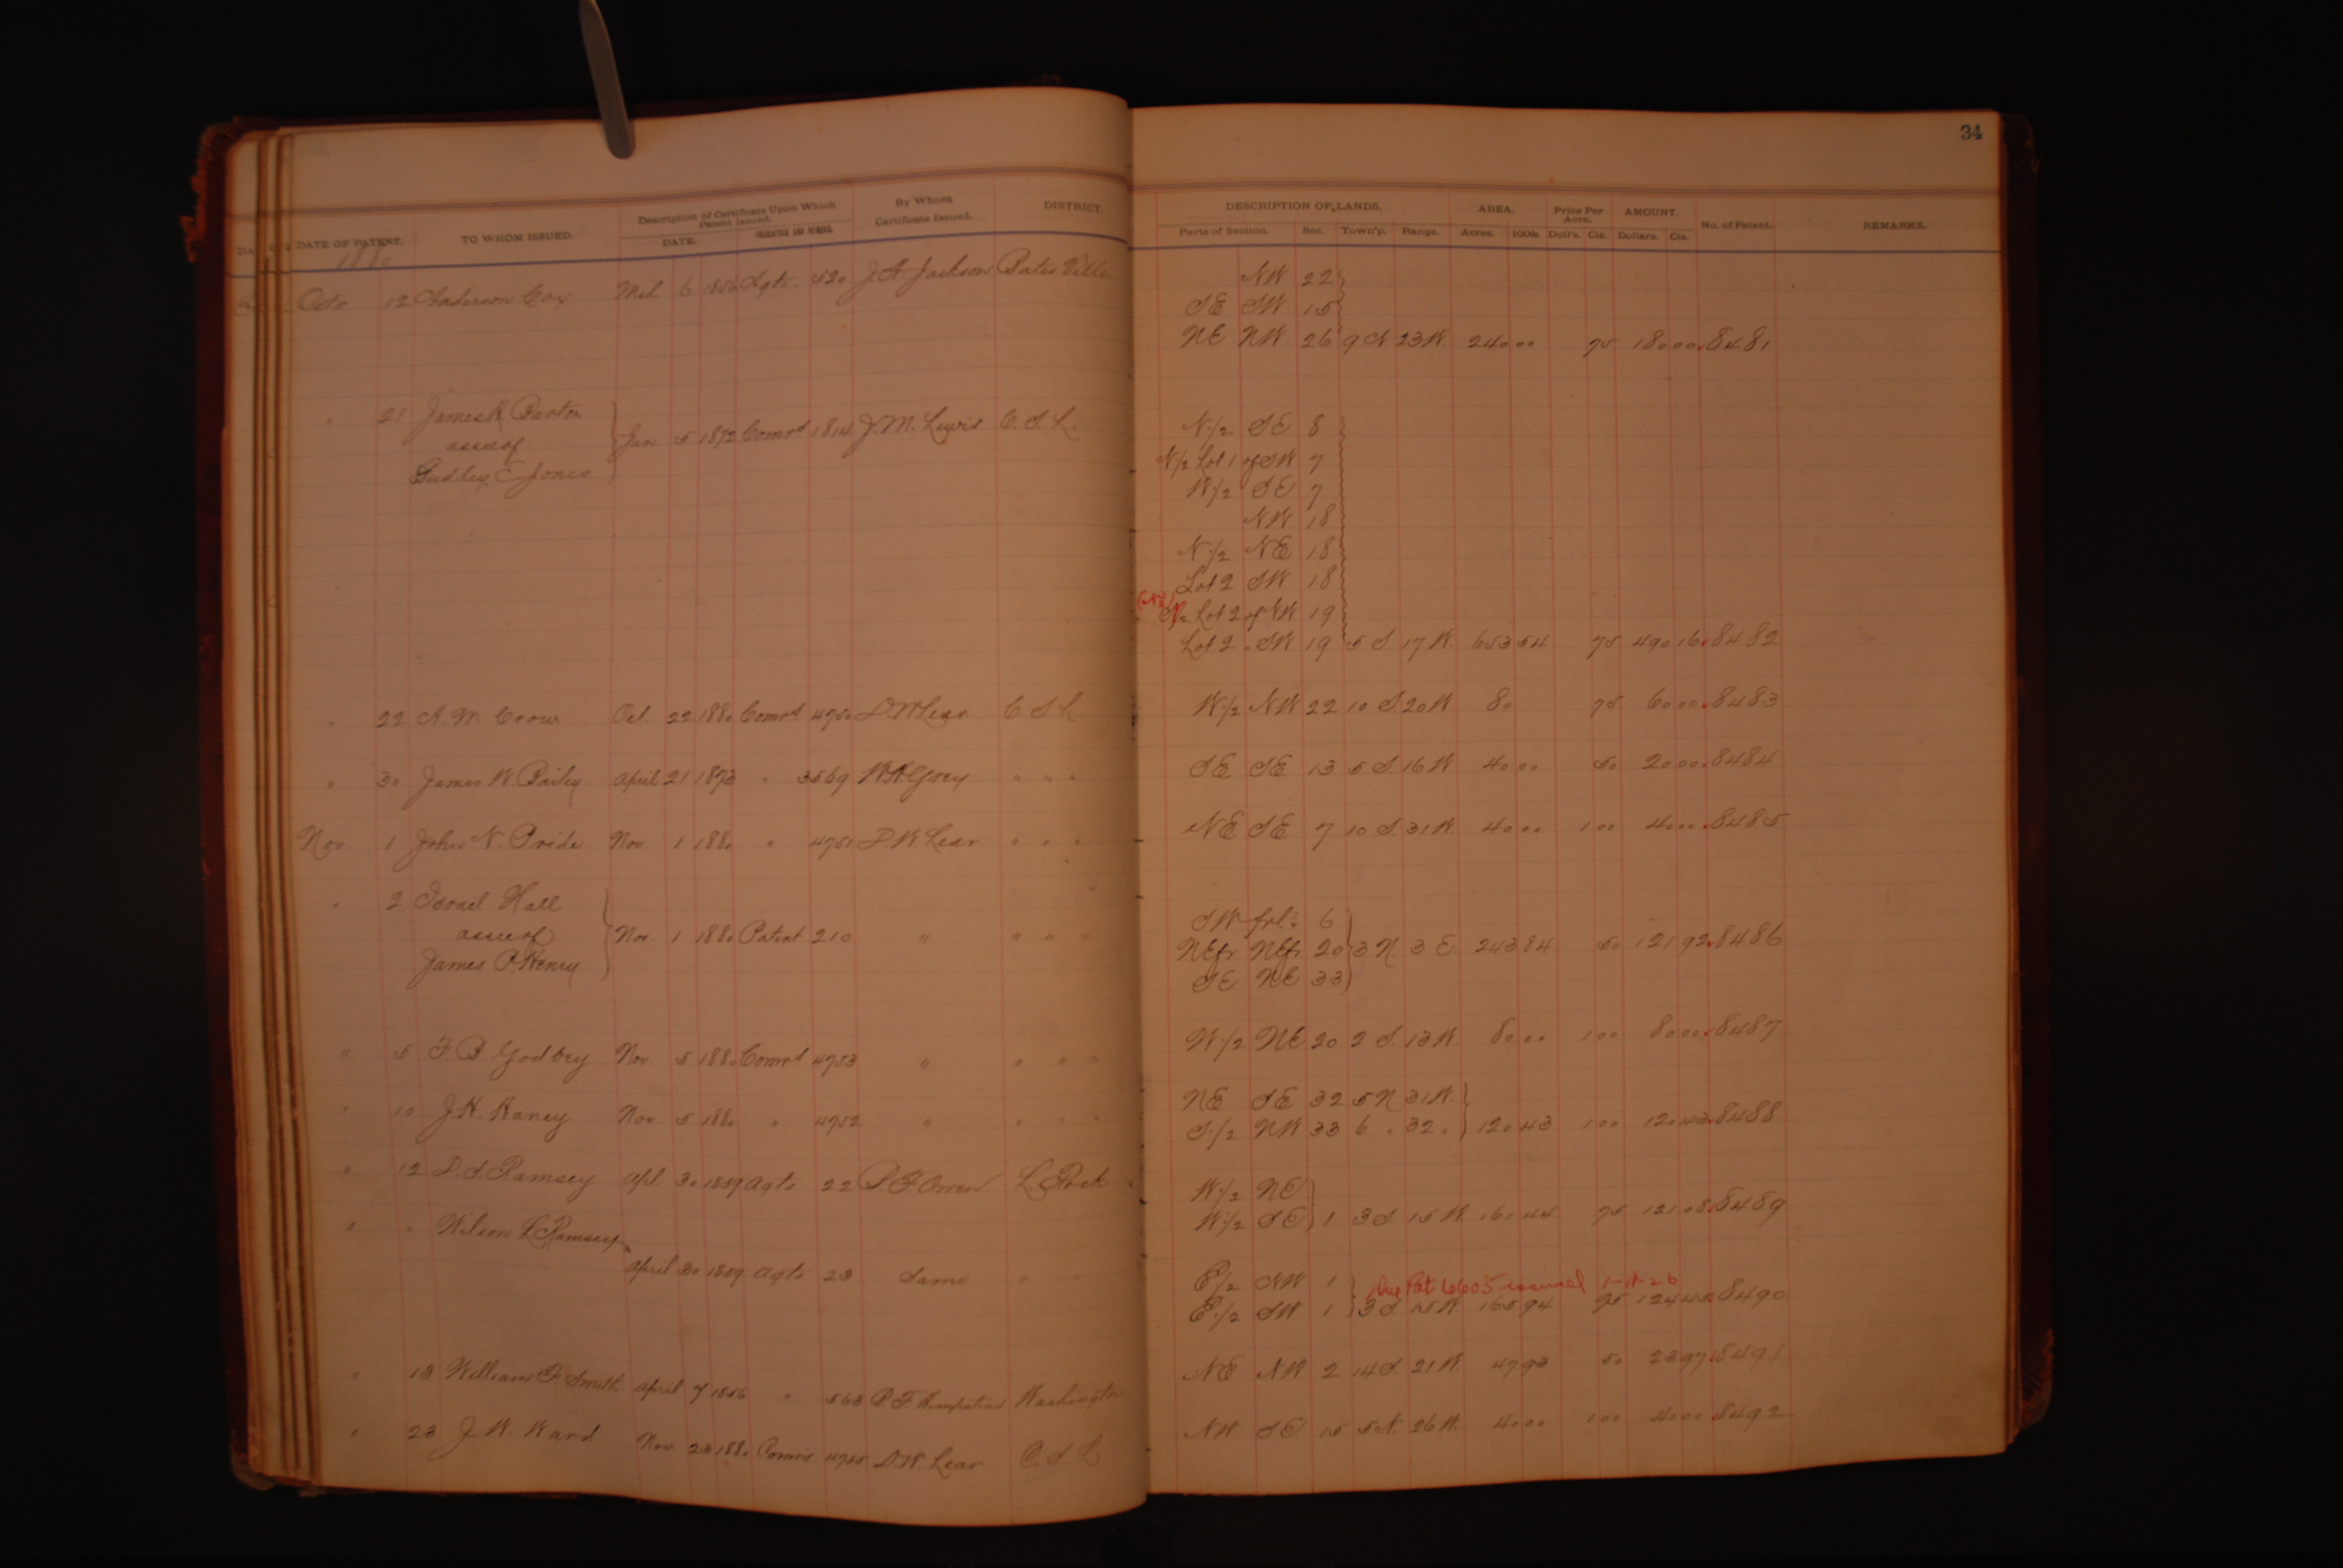 34
DATE OF PATENT. TO WHOM ISSUED. Description of Certificate Upon Which Patent Issued. DATE. CHARACTER AND NUMBER. By Whom Certificate Issued. DISTRICT. DESCRIPTION OF LANDS. Parts of Section. Sec. Town'p. Range. AREA. Acres. 100ths. Price Per Acre. Doll's. Cts. AMOUNT. Dollars. Cts. No. of Patent. REMARKS.
1880
NW 22
Octo 12 Anderson Cox Mch 6 1856 Agts. 520 J. A. Jackson Bates Ville SE SW 15
NE NW 26 9 N. 23 W. 240 00 75 180 00 8481
" 21 James K Barton Jan. 5 1872 Comrs 1814 J. M. Lewis C. S. L. N 1/2 SE 8
assee of N 1/2 Lot 1 of SW 7
Dudley E Jones W 1/2 SE 7
NW 18
N 1/2 NE 18
Lot 2 SW 18
(N 1/2) S 1/2 Lot 2 of NW 19
Lot 2 " SW 19 5 S. 17 W. 653 54 75 490 16 8482
" 22 A. M. Crow Oct. 22 1880 Comrs 4750 D. W. Lear C. S. L W 1/2 NW 22 10 S. 20 W 80 75 60 00 8483
" 30 James W. Bailey April 21 1873 " 3569 W. R. Grey " " " SE SE 13 5 S. 16 W 40 00 50 20 00 8484
Nov. 1 John N. Pride Nov. 1 1880 " 4751 D. W. Lear " " " NE SE 7 10 S. 31 W. 40 00 1 00 40 00 8485
" 2 Israel Hall SW frl. 6
assee of Nov 1 1880 Patent 210 " " " " NE fr. NE fr. 20 3 N. 3 E. 243 84 50 121 92 8486
James P. Henry SE NE 33
" 5 F. B. Godbey Nov 5 1880 Comrs 4753 " " " " W 1/2 NE 20 2 S. 13 W. 80 00 1 00 80 00 8487
NE SE 32 5 N 31 W.
" 10 J. H. Haney Nov. 5 1880 " 4752 " " " " S 1/2 NW 33 6 " 32 " 120 43 1 00 120 43 8488
" 12 D. S. Ramsey Apl. 30 1859 Agts 22 L. Rock W 1/2 NE
W 1/2 SE 1 3 S. 15 W. 161 44 75 121 08 8489
" " Wilson L Ramsey
April 30 1859 Agts 23 Same " " E 1/2 NW 1 Dup Pat 6605 issued
E 1/2 SW 1 3 S. 15 W. 165 94 75 124 45 8490
" 13 William F. Smith April 7 1856 " 563 B F Hempstead Washington NE NW 2 14 S. 21 W. 47 93 50 23 97 8491
" 23 J. W. Ward Nov 23 1880 Comrs 4755 D. W. Lear C. S. L NW SE 15 5 N. 26 W. 40 00 1 00 40 00 8492